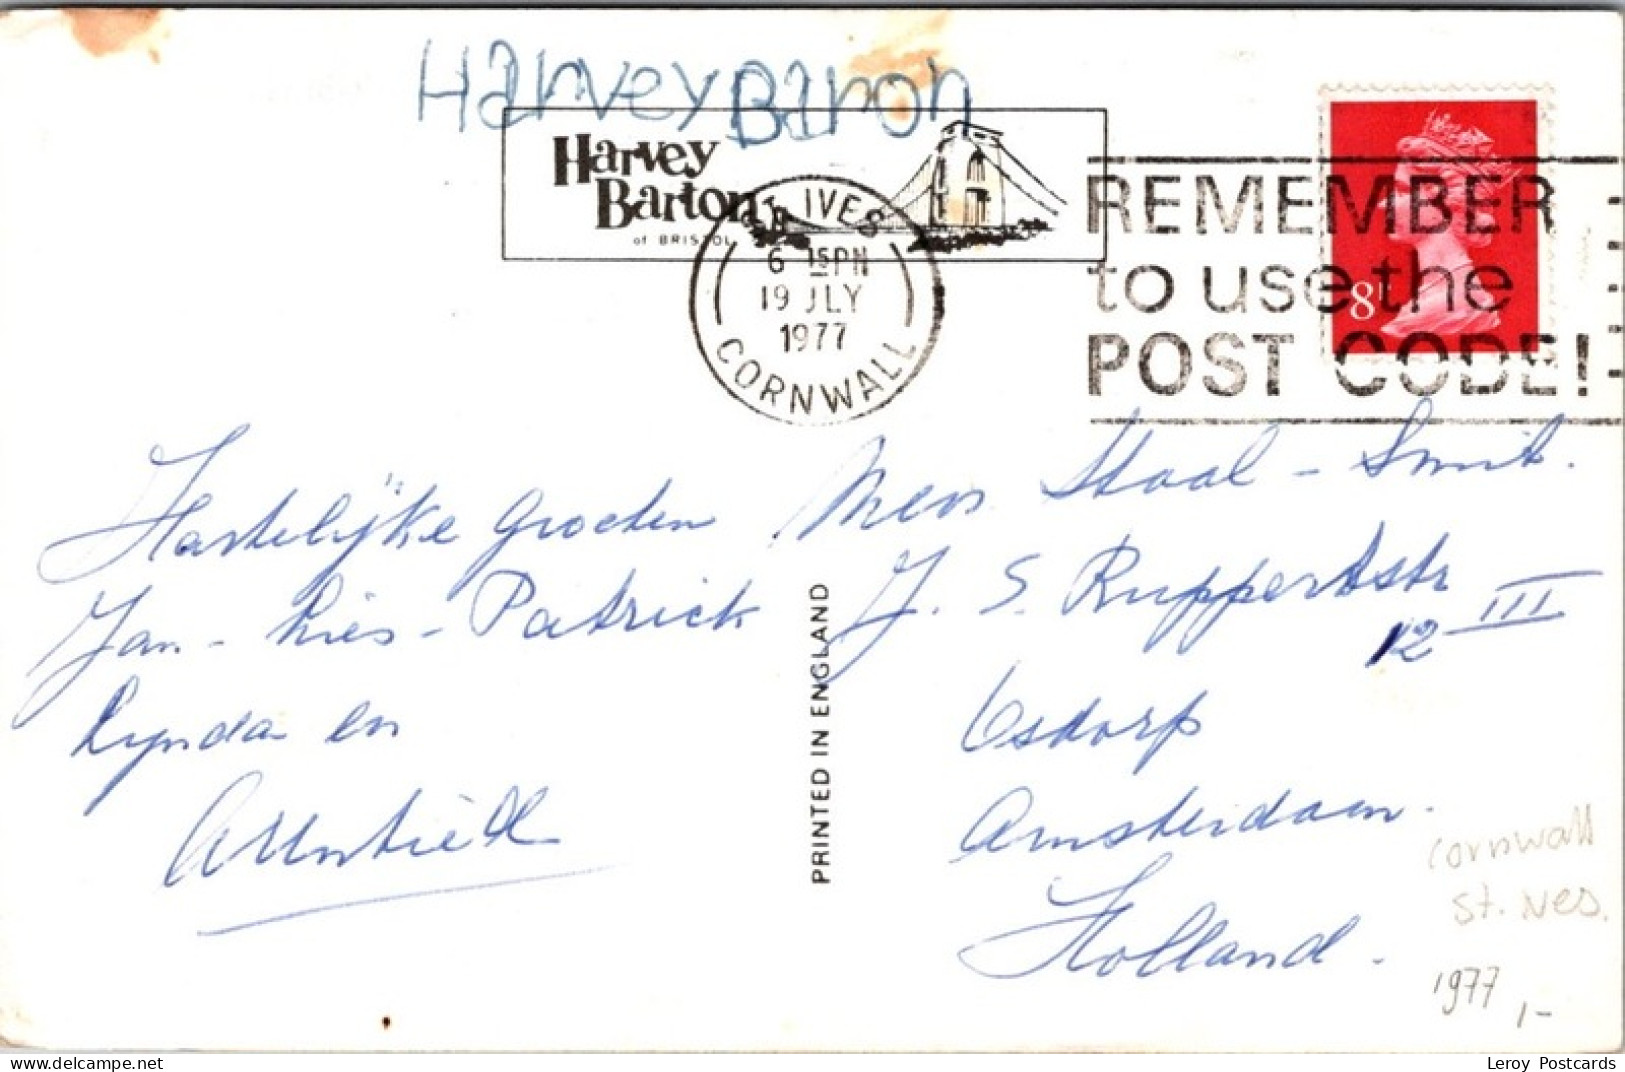 Harvey Baron
Harvey
Barton
of BRISTOL
ST. IVES
6 15 PM
19 JLY
1977
CORNWALL
REMEMBER
to use the
POST CODE!
8P
Hartelijke Groeten
Jan - Lies - Patrick
Lynda en
Mevr. Staal - Smit.
J. S. Ruppertstr
12 III
Osdorp
Amsterdam.
Holland.
PRINTED IN ENGLAND
cornwall
St. Ives.
1977 1-
Leroy Postcards